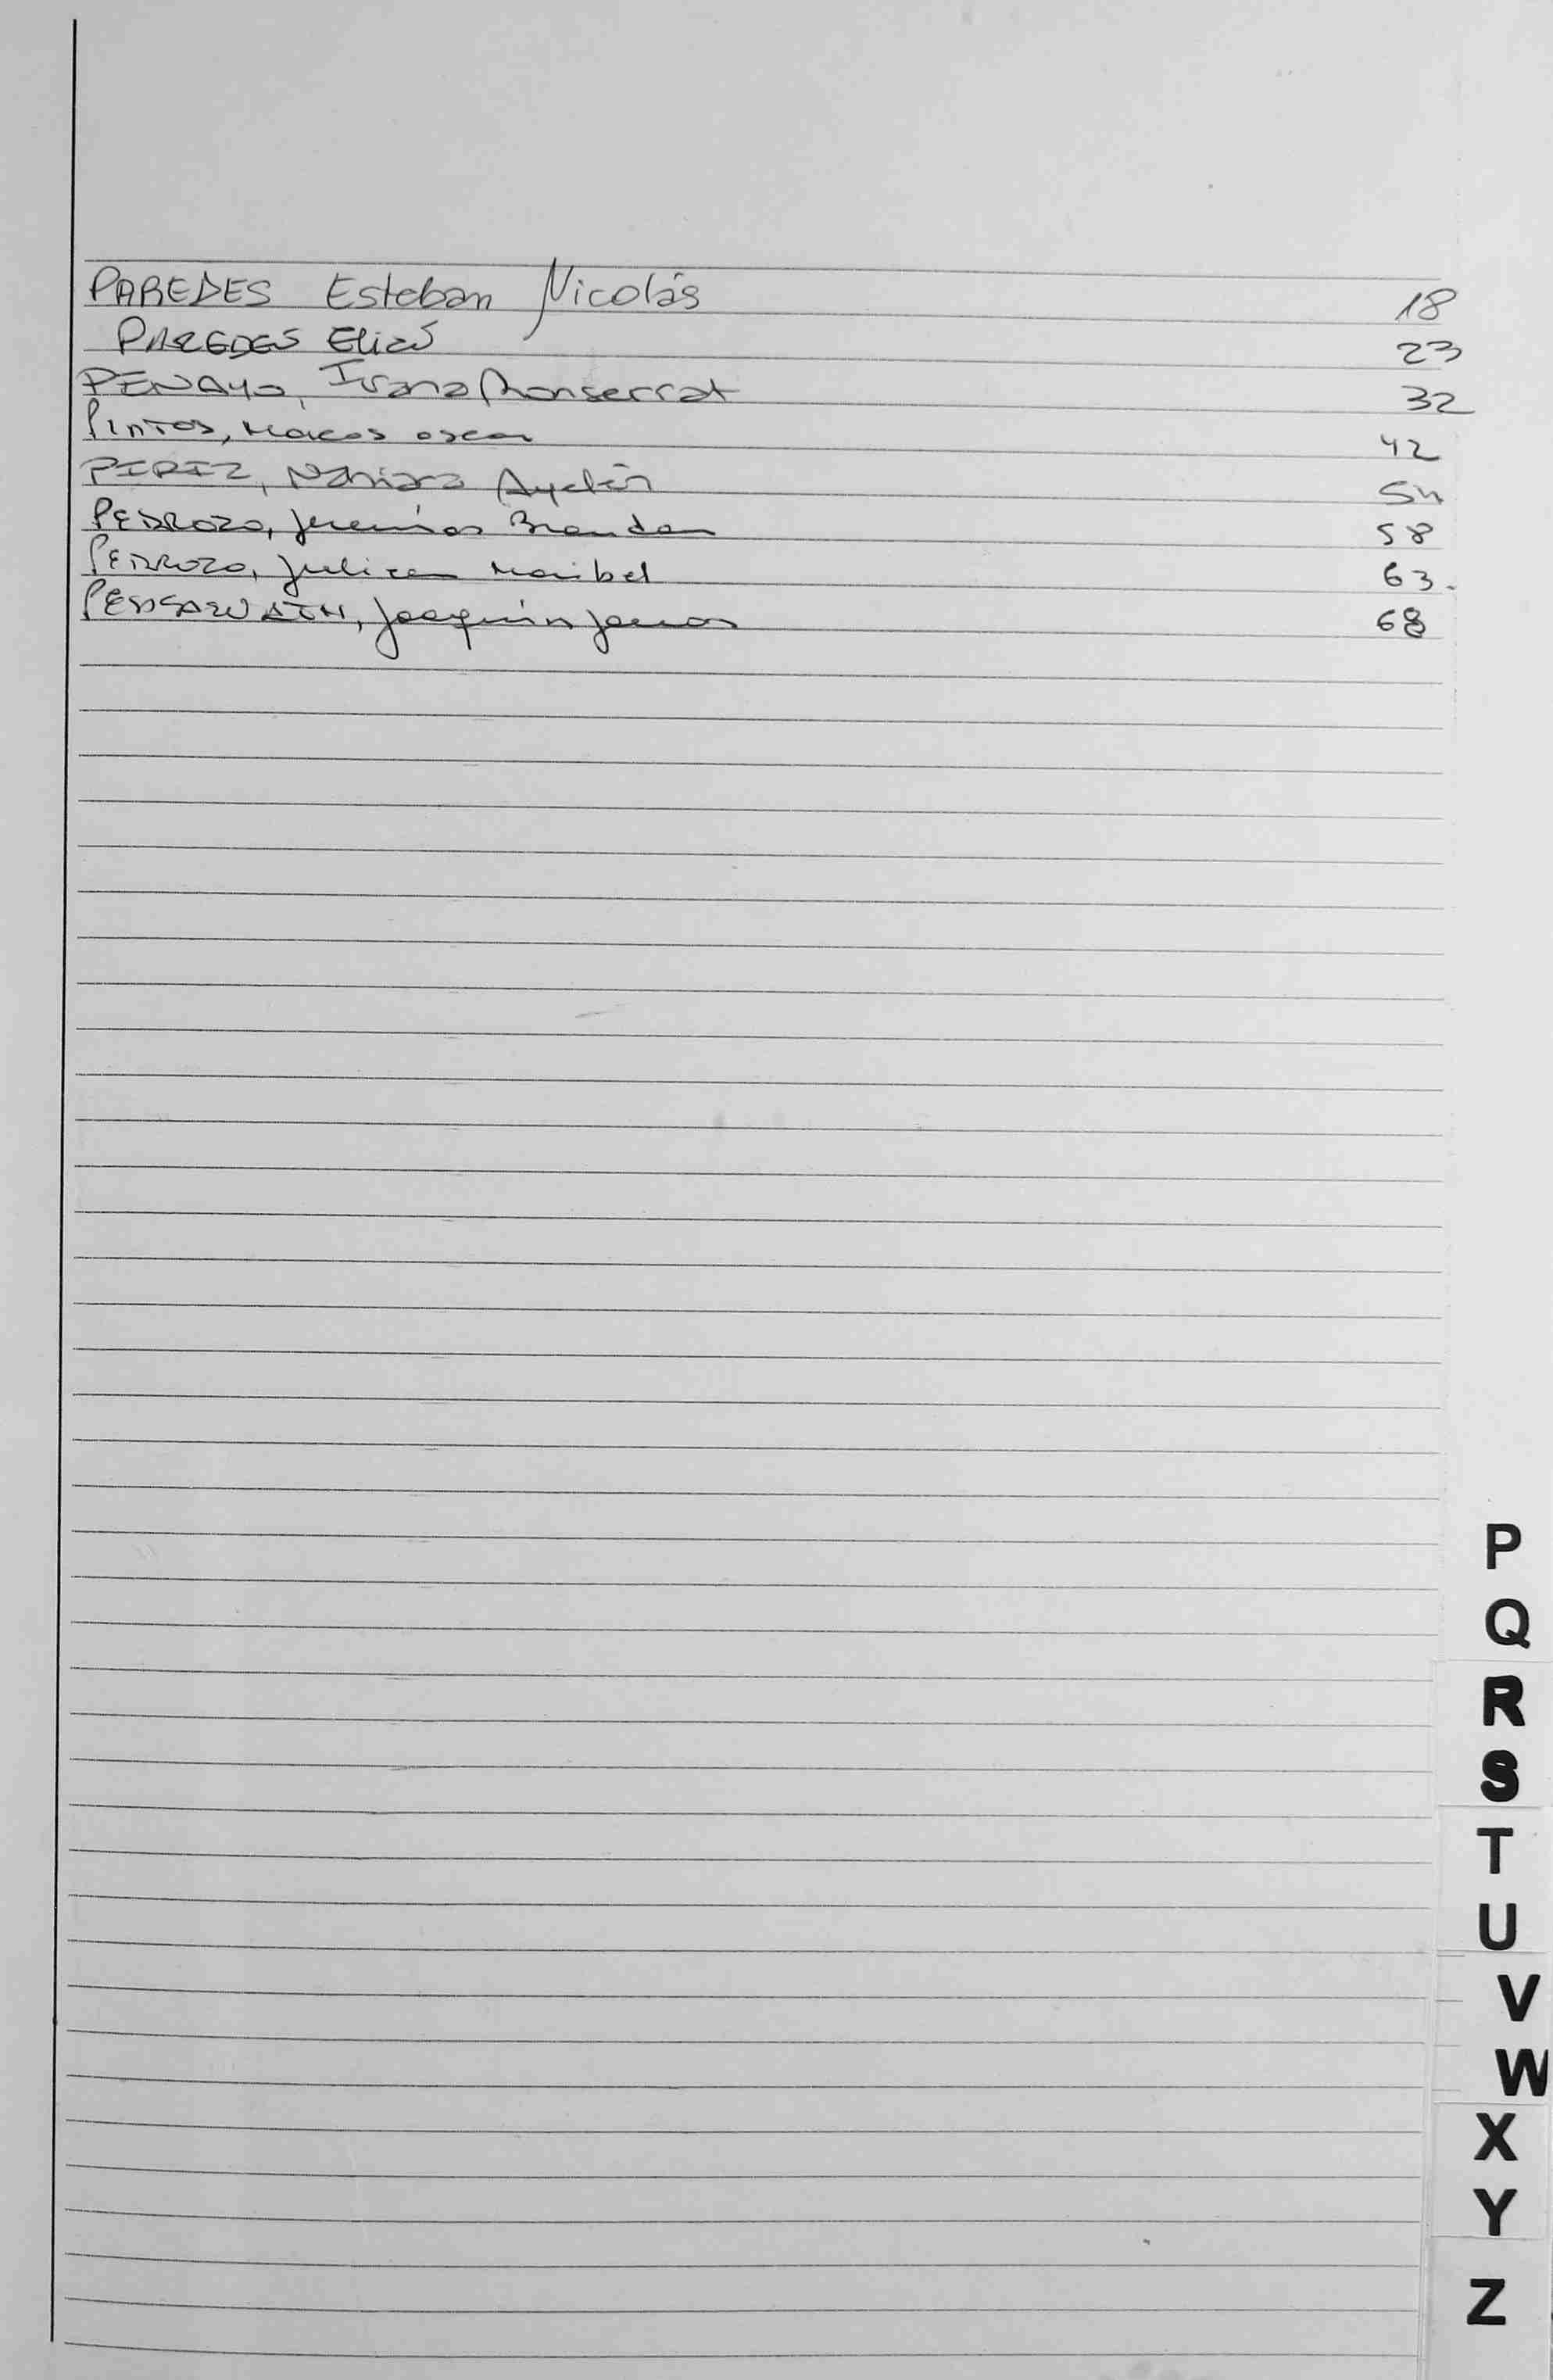 PAREDES Esteban Nicolás 18
PAREDES Elias 23
PENAYO, Ivana Monserrat 32
PINTOS, Marcos oscar 42
PIRIZ, Nahiara Ayelén 54
PEDROZO, Jeremías Brandon 58
PEDROZO, Julicen Maribel 63.
Joaquín 68
P
Q
R
S
T
U
V
W
X
Y
Z